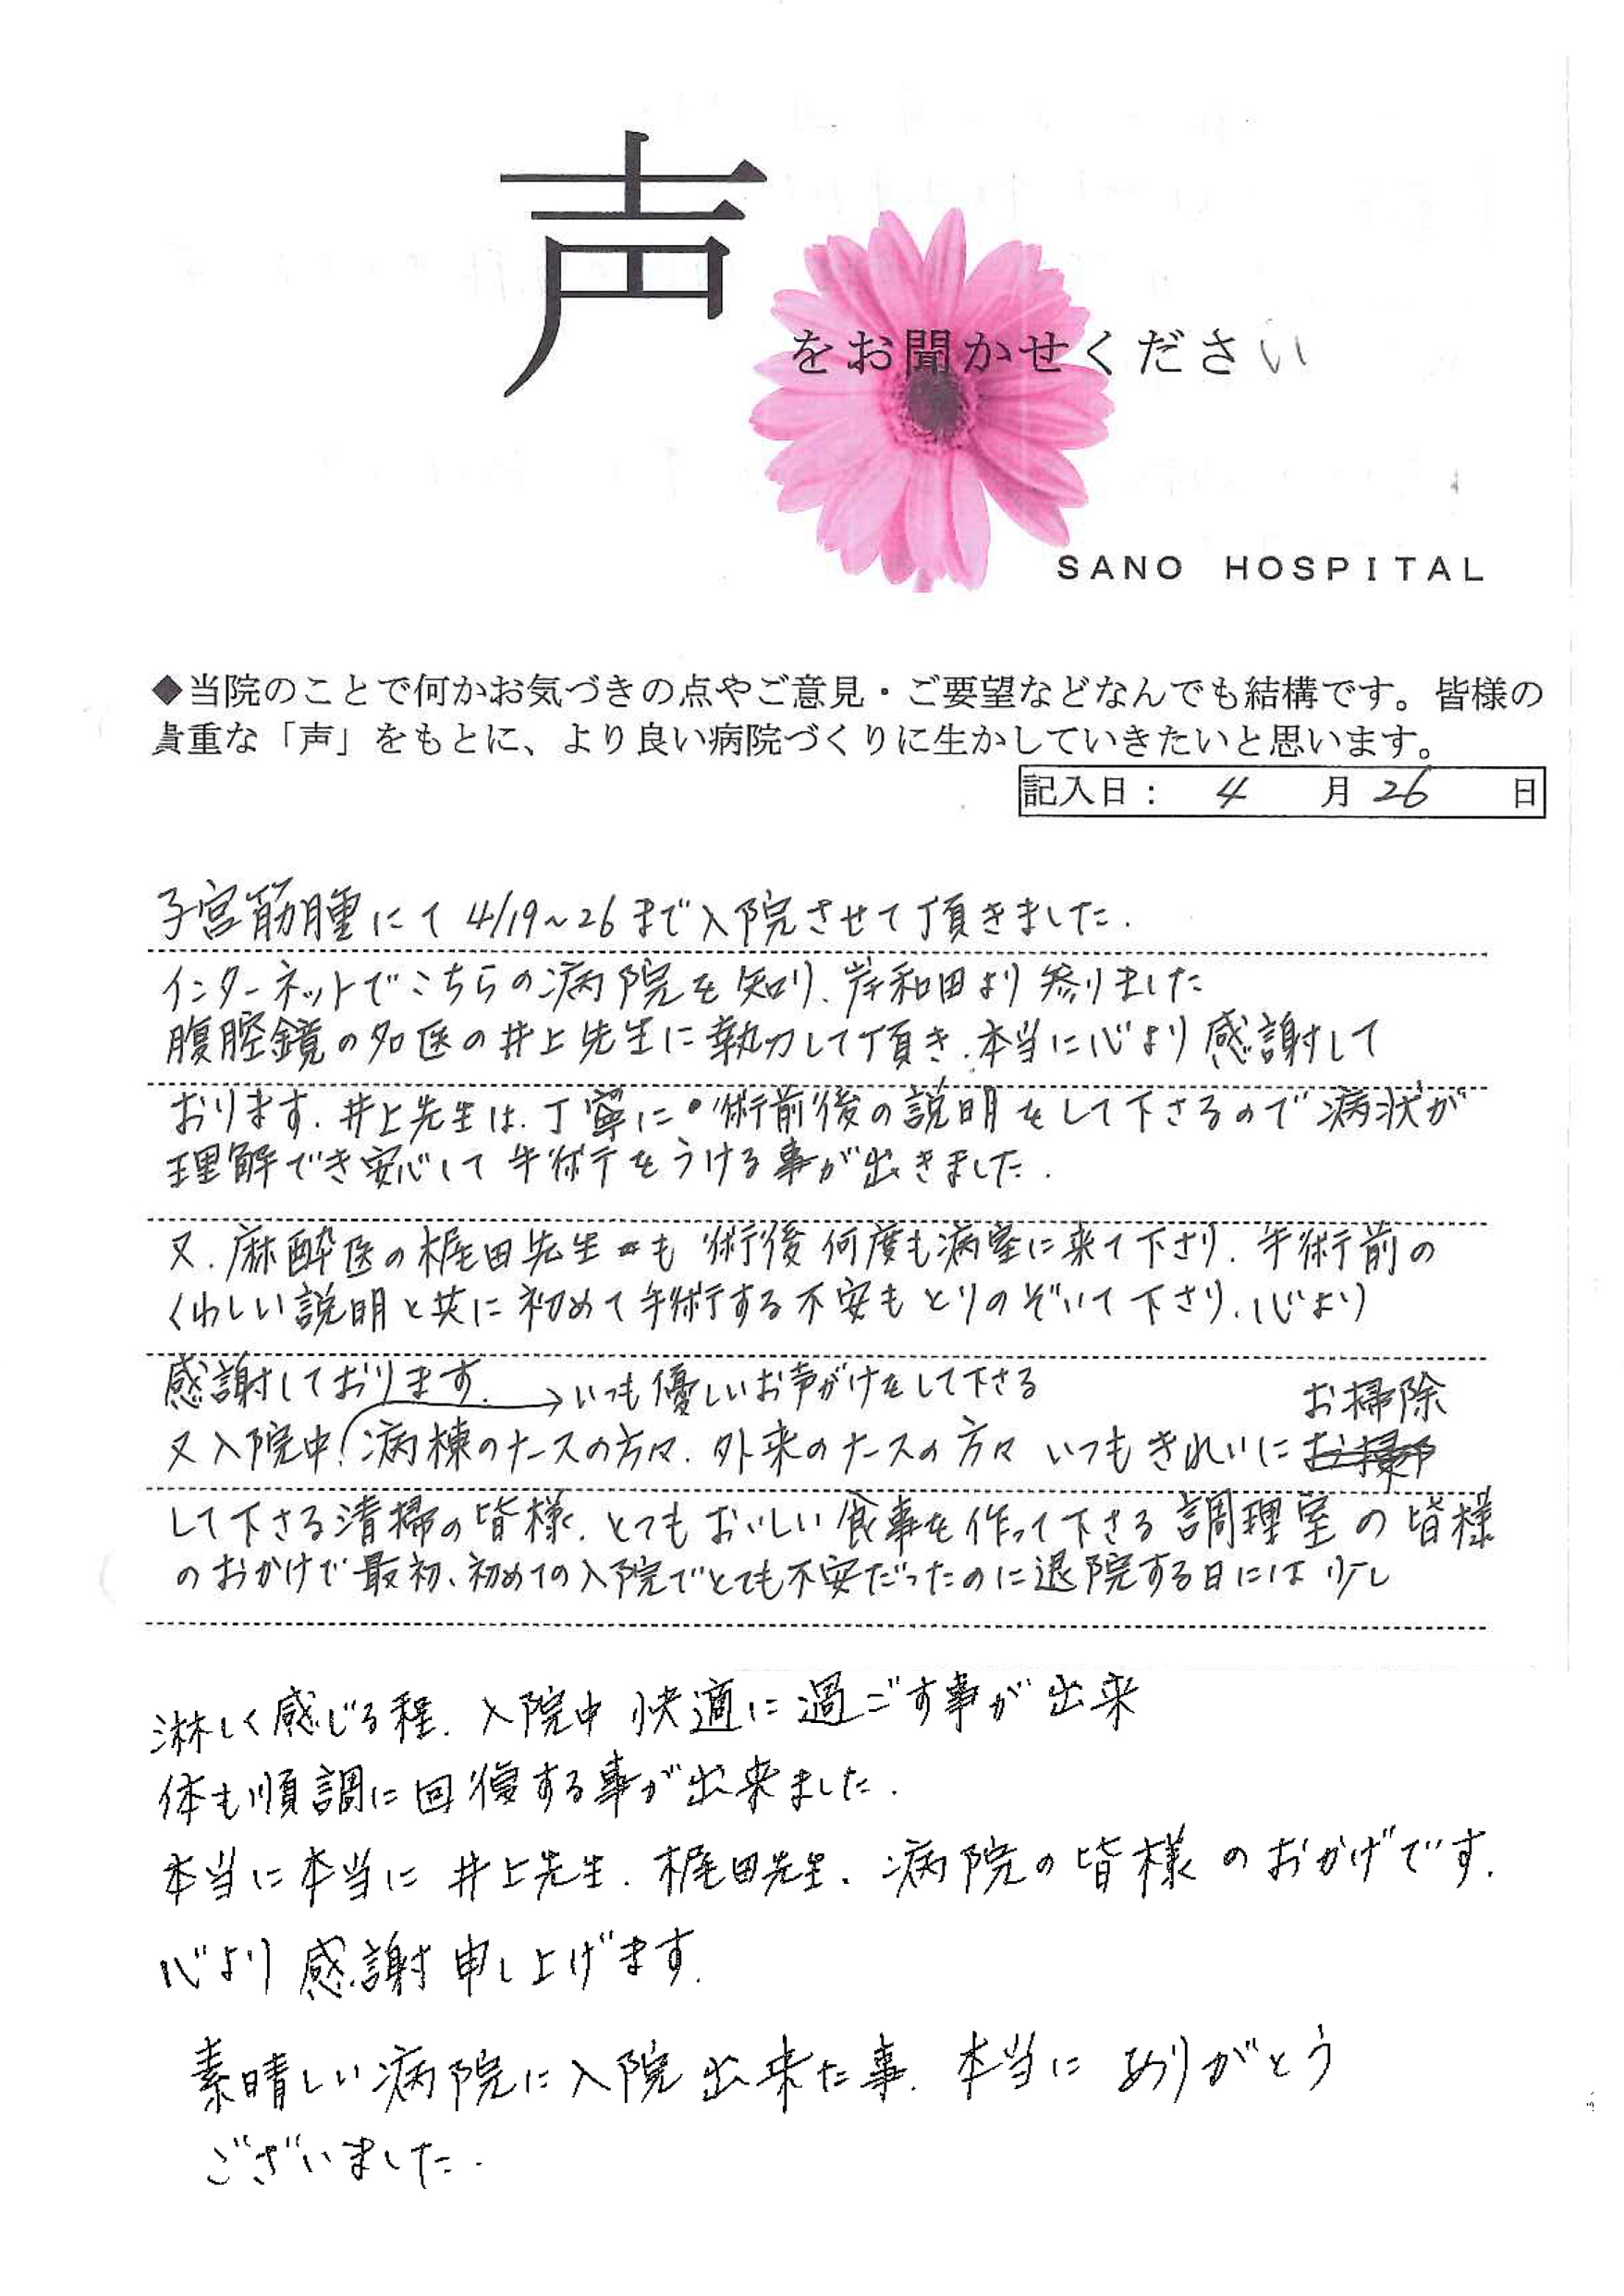 声
をお聞かせください
SANO HOSPITAL
◆当院のことで何かお気づきの点やご意見・ご要望などなんでも結構です。皆様の
貴重な「声」をもとに、より良い病院づくりに生かしていきたいと思います。
記入日： 4 月 26 日
子宮筋腫にて 4/19~26まで入院させて頂きました.
インターネットでこちらの病院を知り、岸和田より参りました
腹腔鏡の名医の井上先生に執刀して頂き、本当に心より感謝して
おります. 井上先生は、丁寧に術前後の説明をして下さるので病状が
理解でき安心して手術をうける事が出きました.
又、麻酔医の梶田先生も術後何度も病室に来て下さり、手術前の
くわしい説明と共に初めて手術する不安もとりのぞいて下さり、心より
感謝しております.
→いつも優しいお声がけをして下さる
お掃除
又入院中、病棟のナースの方々、外来のナースの方々 いつもきれいに
して下さる清掃の皆様、とてもおいしい食事を作って下さる調理室の皆様
のおかげで最初、初めての入院でとても不安だったのに退院する日には少し
淋しく感じる程、入院中快適に過ごす事が出来
体も順調に回復する事が出来ました.
本当に本当に 井上先生、梶田先生、病院の皆様のおかげです.
心より感謝申し上げます.
素晴しい病院に入院出来た事、本当にありがとう
ございました.